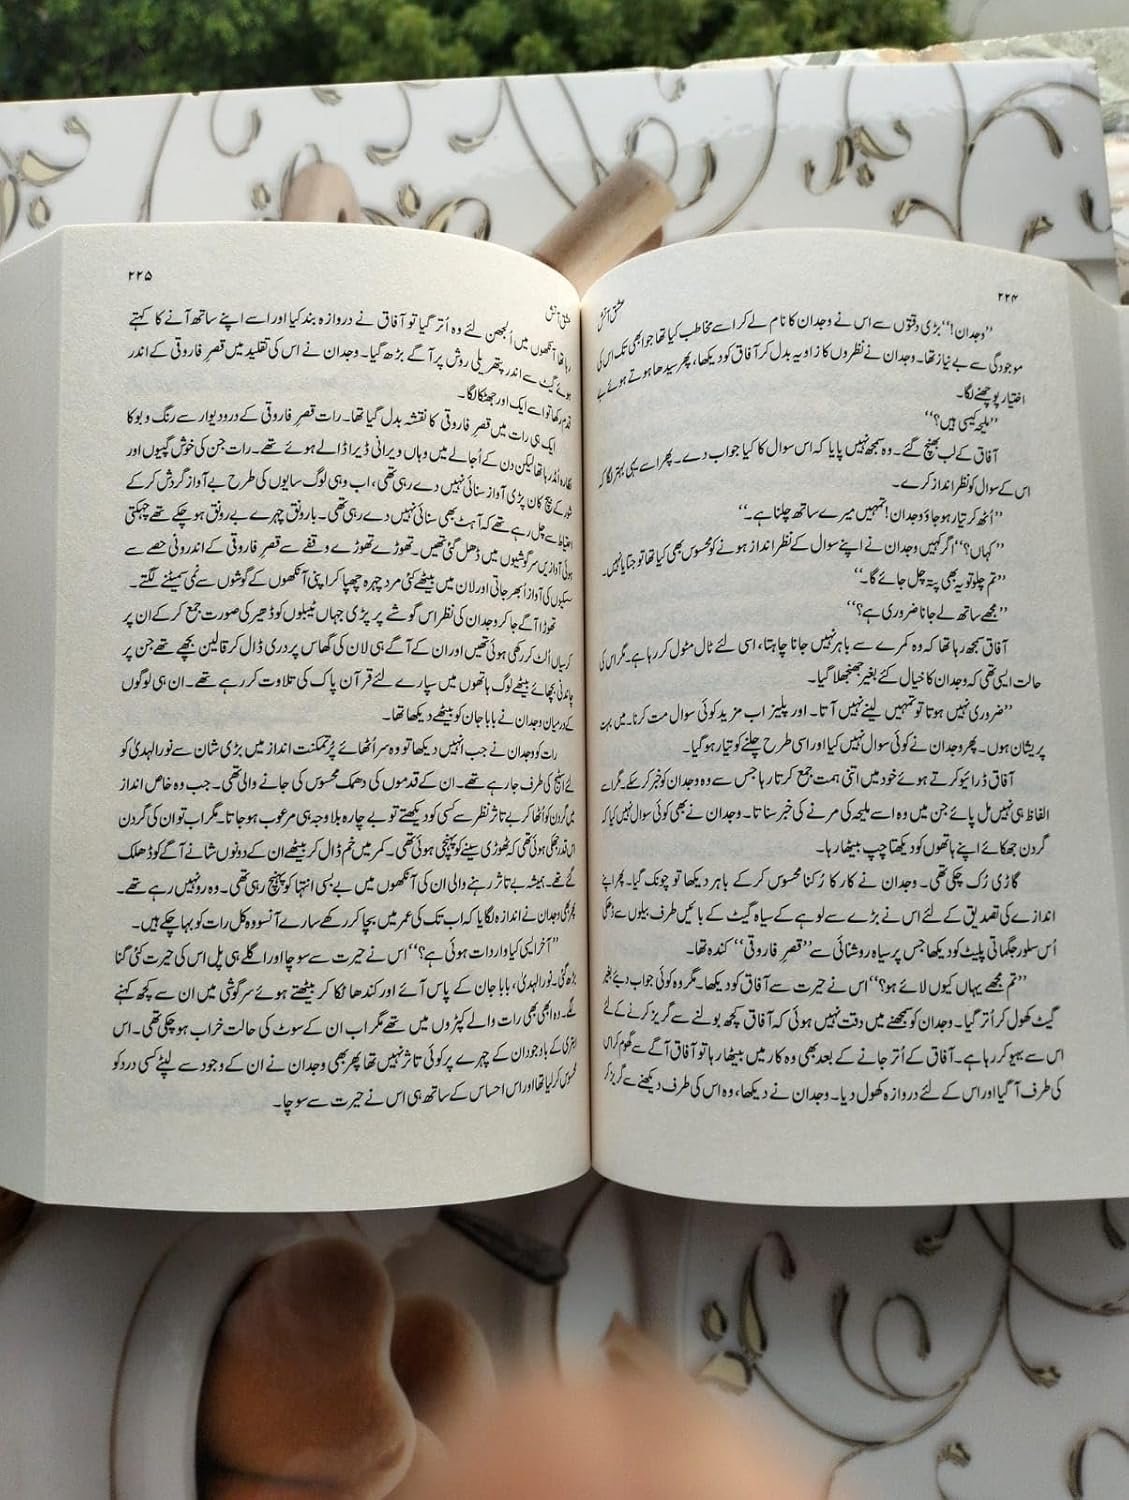 ۲۲۴
عشق آتش
”وجدان!“ بڑی دقتوں سے اس نے وجدان کا نام لے کر اسے مخاطب کیا تھا جو ابھی تک اس کی
موجودگی سے بے نیاز تھا۔ وجدان نے نظروں کا زاویہ بدل کر آفاق کو دیکھا، پھر سیدھا ہوتے ہوئے بے
اختیار پوچھنے لگا۔
”ملیحہ کیسی ہیں؟“
آفاق کے لب بھینچ گئے۔ وہ سمجھ نہیں پایا کہ اس سوال کا کیا جواب دے۔ پھر اسے یہی بہتر لگا کہ
اس کے سوال کو نظر انداز کر دے۔
”اُٹھ کر تیار ہو جاؤ وجدان! تمہیں میرے ساتھ چلنا ہے۔“
”کہاں؟“ اگر کہیں وجدان نے اپنے سوال کے نظر انداز ہونے کو محسوس بھی کیا تھا تو جتایا نہیں۔
”تم چلو تو یہ بھی پتہ چل جائے گا۔“
”مجھے ساتھ لے جانا ضروری ہے؟“
آفاق سمجھ رہا تھا کہ وہ کمرے سے باہر نہیں جانا چاہتا، اسی لئے ٹال مٹول کر رہا ہے۔ مگر اس کی
حالت ایسی تھی کہ وجدان کا خیال کئے بغیر جھنجھلا گیا۔
”ضروری نہیں ہوتا تو تمہیں لینے نہیں آتا۔ اور پلیز اب مزید کوئی سوال مت کرنا۔ میں بہت
پریشان ہوں۔ پھر وجدان نے کوئی سوال نہیں کیا اور اسی طرح چلنے کو تیار ہو گیا۔
آفاق ڈرائیو کرتے ہوئے خود میں اتنی ہمت جمع کرتا رہا جس سے وہ وجدان کو خبر کر سکے۔ مگر اے
الفاظ ہی نہیں مل پائے جن میں وہ اسے ملیحہ کی مرنے کی خبر سناتا۔ وجدان نے بھی کوئی سوال نہیں کیا کہ
گردن جھکائے اپنے ہاتھوں کو دیکھتا چپ بیٹھا رہا۔
گاڑی رُک چکی تھی۔ وجدان نے کار کا رُکنا محسوس کر کے باہر دیکھا تو چونک گیا۔ پھر اپنے
اندازے کی تصدیق کے لئے اس نے بڑے سے لوہے کے سیاہ گیٹ کے بائیں طرف بیلوں سے ڈھکی
اُس سلور جگمگاتی پلیٹ کو دیکھا جس پر سیاہ روشنائی سے ”قصرِ فاروقی“ کندہ تھا۔
”تم مجھے یہاں کیوں لائے ہو؟“ اس نے حیرت سے آفاق کو دیکھا۔ مگر وہ کوئی جواب دیے بغیر
گیٹ کھول کر اُتر گیا۔ وجدان کو سمجھنے میں دقت نہیں ہوئی کہ آفاق کچھ بولنے سے گریز کرنے کے لئے
اس سے یہو کر رہا ہے۔ آفاق کے اُتر جانے کے بعد بھی وہ کار میں بیٹھا رہا تو آفاق آگے سے گھوم کر اس
کی طرف آ گیا اور اس کے لئے دروازہ کھول دیا۔ وجدان نے دیکھا، وہ اس کی طرف دیکھنے سے گریز کر
۲۲۵
عشق آتش
رہا تھا آنکھوں میں اُلجھن لئے وہ اُتر گیا تو آفاق نے دروازہ بند کیا اور اسے اپنے ساتھ آنے کا کہتے
ہوئے گیٹ سے اندر پتھریلی روش پر آگے بڑھ گیا۔ وجدان نے اس کی تقلید میں قصرِ فاروقی کے اندر
قدم رکھا تو اسے ایک اور جھٹکا لگا۔
ایک ہی رات میں قصرِ فاروقی کا نقشہ بدل گیا تھا۔ رات قصرِ فاروقی کے در و دیوار سے رنگ و بو کا
اُمڈ رہا تھا لیکن دن کے اُجالے میں وہاں ویرانی ڈیرا ڈالے ہوئے تھے۔ رات جن کی خوش گپیوں اور
شور کے بیچ کان پڑی آواز سنائی نہیں دے رہی تھی، اب وہی لوگ سایوں کی طرح بے آواز گردش کر کے
احتیاط سے چل رہے تھے کہ آہٹ بھی سنائی نہیں دے رہی تھی۔ بارونق چہرے بے رونق ہو چکے تھے چہکتی
ہوئی آوازیں سرگوشیوں میں ڈھل گئی تھیں۔ تھوڑے تھوڑے وقفے سے قصرِ فاروقی کے اندرونی حصے سے
سسکیوں کی آواز اُبھر جاتی اور لان میں بیٹھے کئی مرد چہرہ چھپا کر اپنی آنکھوں کے گوشوں سے نمی سمیٹنے لگتے۔
تھوڑا آگے جا کر وجدان کی نظر اس گوشے پر پڑی جہاں ٹیبلوں کو ڈھیر کی صورت جمع کر کے ان پر
کرسیاں اُلٹ کر رکھی ہوئی تھیں اور ان کے آگے ہی لان کی گھاس پر دری ڈال کر قالین بچھے تھے جن پر
چاندنی بچھائے بیٹھے لوگ ہاتھوں میں سپارے لئے قرآن پاک کی تلاوت کر رہے تھے۔ ان ہی لوگوں
کے درمیان وجدان نے بابا جان کو بیٹھے دیکھا تھا۔
رات کو وجدان نے جب انہیں دیکھا تو وہ سر اُٹھائے پُرتمکنت انداز میں بڑی شان سے نور الہدیٰ کو
لئے اسٹیج کی طرف جا رہے تھے۔ ان کے قدموں کی دھمک محسوس کی جانے والی تھی۔ جب وہ خاص انداز
میں گردن کو اُٹھا کر بے تاثر نظر سے کسی کو دیکھتے تو بے چارہ بلاوجہ ہی مرعوب ہو جاتا۔ مگر اب تو ان کی گردن
اس قدر جھکی ہوئی تھی کہ ٹھوڑی سینے کو پہنچی ہوئی تھی۔ کمر میں خم ڈال کر بیٹھے ان کے دونوں شانے آگے کو ڈھلک
گئے تھے۔ ہمیشہ بے تاثر رہنے والی ان کی آنکھوں میں بے بسی انتہا کو پہنچ رہی تھی۔ وہ رو نہیں رہے تھے۔
پھر بھی وجدان نے اندازہ لگایا کہ اب تک کی عمر میں بچا کر رکھے سارے آنسو وہ کل رات کو بہا چکے ہیں۔
”آخر ایسی کیا واردات ہوئی ہے؟“ اس نے حیرت سے سوچا اور اگلے ہی پل اس کی حیرت کئی گنا
بڑھ گئی۔ نور الہدیٰ، بابا جان کے پاس آئے اور کندھا ٹکا کر بیٹھتے ہوئے سرگوشی میں ان سے کچھ کہنے
لگے۔ وہ ابھی بھی رات والے کپڑوں میں تھے مگر اب ان کے سوٹ کی حالت خراب ہو چکی تھی۔ اس
ابتری کے باوجود ان کے چہرے پر کوئی تاثر نہیں تھا پھر بھی وجدان نے ان کے وجود سے لپٹے کسی درد کو
محسوس کر لیا تھا اور اس احساس کے ساتھ ہی اس نے حیرت سے سوچا۔